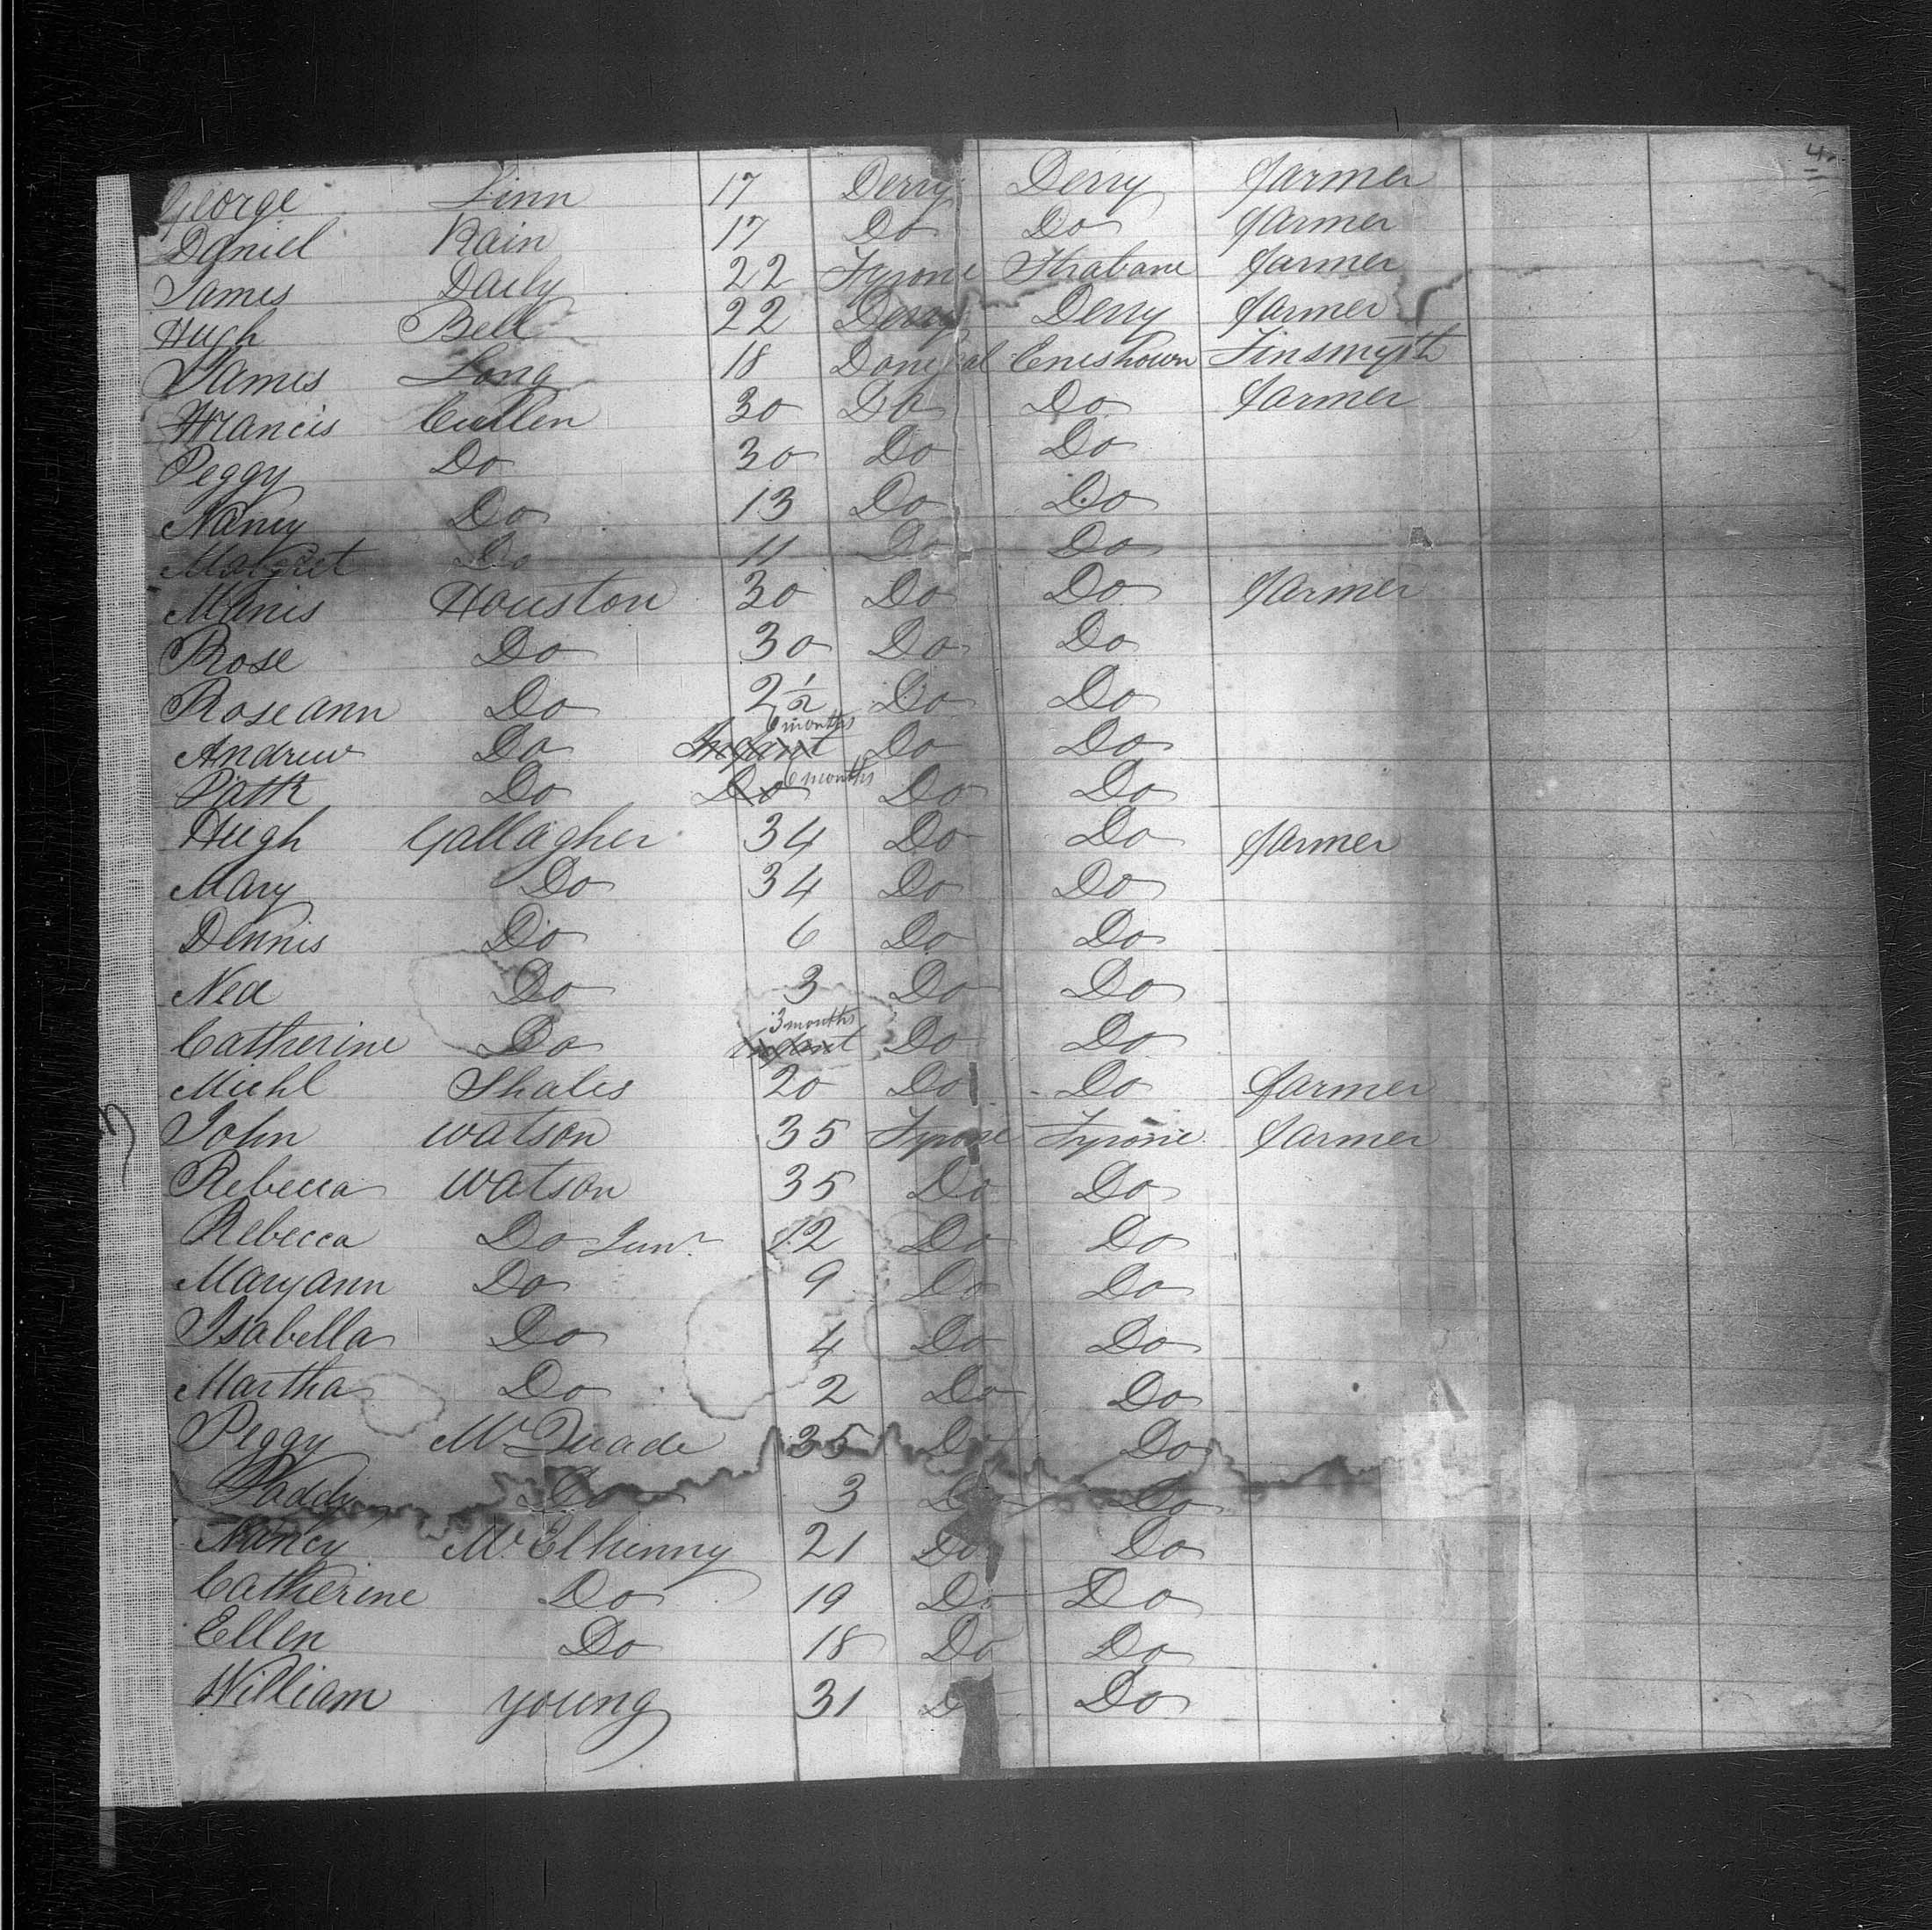 4
George Finn 17 Derry Derry farmer
Daniel Kain 17 Do Do farmer
James Daily 22 Tyrone Strabane farmer
Hugh Bell 22 Derry Derry farmer
James Long 18 Donegal Eneshown Tinsmyth
Francis Cullen 30 Do Do farmer
Peggy Do 30 Do Do
Nancy Do 13 Do Do
Do 11 Do Do
Manis Houston 30 Do Do farmer
Rose Do 30 Do Do
Roseann Do 2 1/2 Do Do
6 months
Andrew Do Infant Do Do
6 months
Patk Do Do Do Do
Hugh Gallagher 34 Do Do farmer
Mary Do 34 Do Do
Dennis Do 6 Do Do
Ned Do 3 Do Do
3 months
Catherine Do Infant Do Do
Michl 20 Do Do farmer
John Watson 35 Tyrone Tyrone farmer
Rebecca Watson 35 Do Do
Rebecca Do Junr 12 Do Do
Maryann Do 9 Do Do
Isabella Do 4 Do Do
Martha Do 2 Do Do
Peggy McQuade 35 Do Do
Paddy Do 3 Do Do
Nancy McElhinny 21 Do Do
Catherine Do 19 Do Do
Ellen Do 18 Do Do
William young 31 Do Do